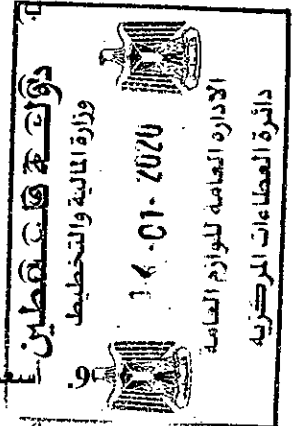 دولة فلسطين
وزارة المالية والتخطيط
-01- 2020
الادارة العامة للوازم العامة
دائرة العطاءات المركزية
9.